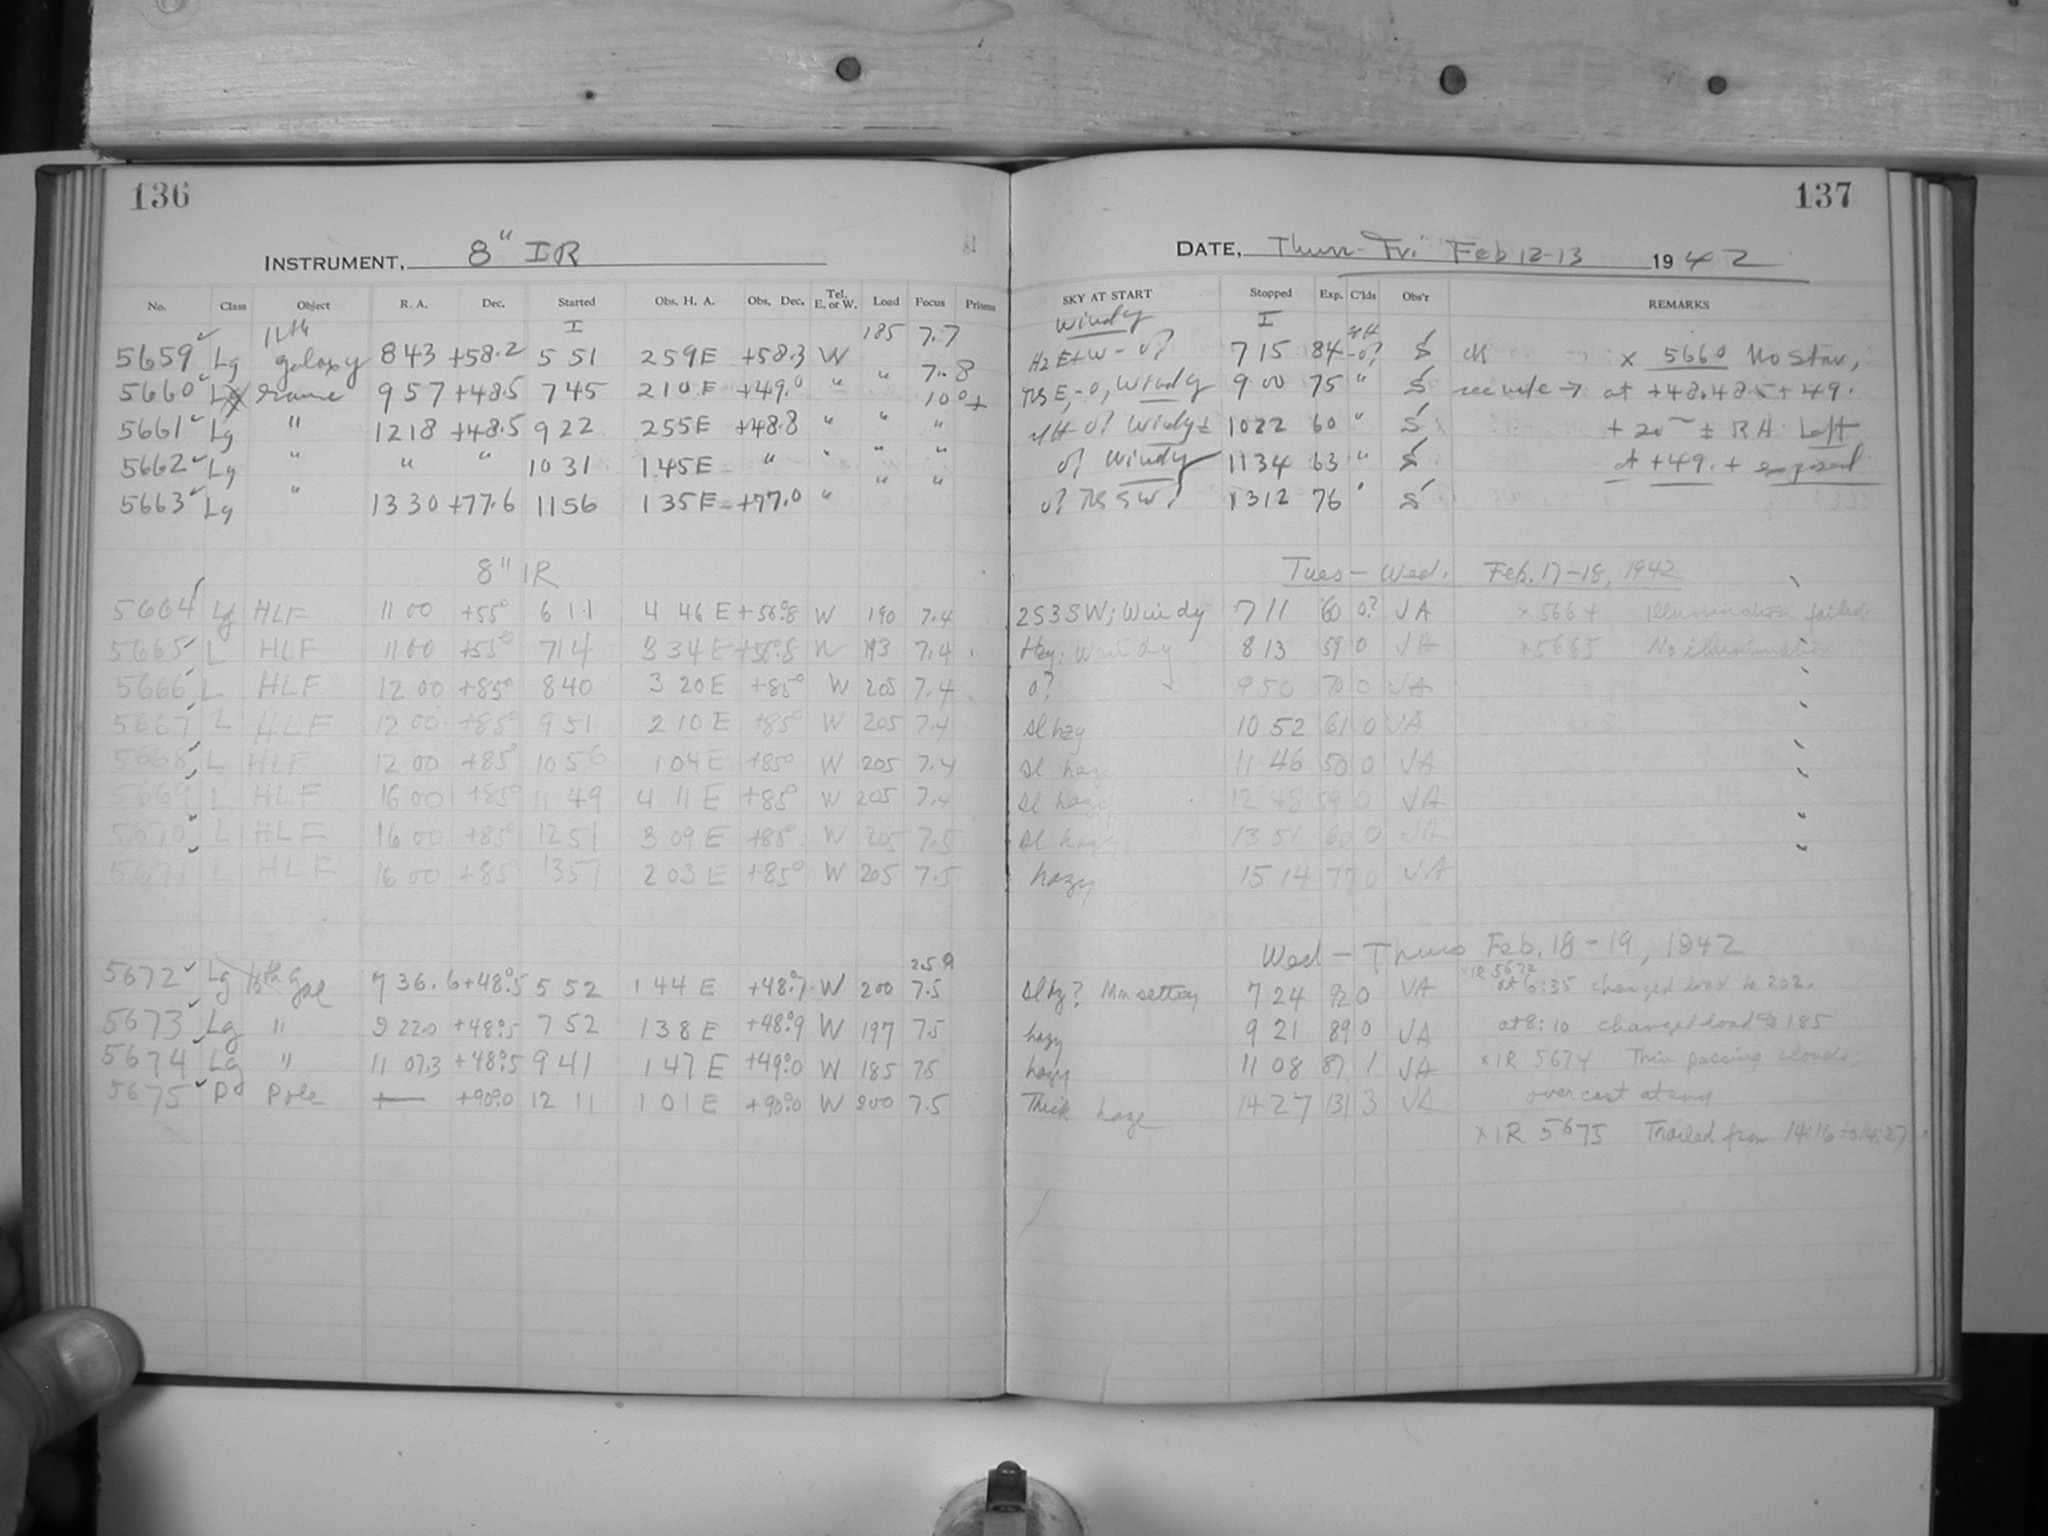 136
INSTRUMENT, 8" IR
No. Class Object R. A. Dec. Started Obs. H. A. Obs. Dec. Tel. E. or W. Load Focus Prisms
11th I 185 7.7
5659 Lg galaxy 8 43 +58.2 5 51 2 59 E +58.3 W
5660 9 57 +48.5 7 45 2 10 E +49.0 " " 7.8
5661 Lg " 12 18 +48.5 9 22 2 55 E +48.8 " " "
5662 Lg " " " 10 31 1 45 E " " " "
5663 Lg " 13 30 +77.6 11 56 1 35 E +77.0 " " "
8" IR
5664 Lg HLF 11 00 +55° 6 11 4 46 E +56°.8 W 190 7.4
5665 L HLF 11 00 +55° 7 14 3 34 E +56°.8 W 193 7.4
5666 L HLF 12 00 +85° 8 40 3 20 E +85° W 205 7.4
5667 L HLF 12 00 +85° 9 51 2 10 E +85° W 205 7.4
5668 L HLF 12 00 +85° 10 56 1 04 E +85° W 205 7.4
5669 L HLF 16 00 +85° 11 49 4 11 E +85° W 205 7.4
5670 L HLF 16 00 +85° 12 51 3 09 E +85° W 205 7.5
5671 L HLF 16 00 +85° 13 57 2 03 E +85° W 205 7.5
5672 Lg Gal 7 36.6 +48°.5 5 52 1 44 E +48°.7 W 200 7.5
5673 Lg " 9 22.0 +48°.5 7 52 1 38 E +48°.9 W 197 7.5
5674 Lg " 11 07.3 +48°.5 9 41 1 47 E +49°.0 W 185 7.5
5675 Pg Pole — +90°.0 12 11 1 01 E +90°.0 W 200 7.5
137
DATE, Thurs-Fri Feb 12-13 1942
SKY AT START Stopped Exp. C'lds Obs'r REMARKS
Windy I
Hz E+W - 0? 7 15 84 -0? S × 5660 No Star,
E, -0, Windy 9 00 75 " S → at +48. 48.5 + 49.
0? Windy ± 10 22 60 " S ± RA. Left
0? Windy 11 34 63 " S at +49. + exposed
0? SW? 13 12 76 " S
Tues - Wed. Feb. 17-18, 1942
2S3SW; Windy 7 11 60 0? JA ×5664 Illumination failed.
Hzy; Windy 8 13 59 0 JA ×5665 No illumination
0? 9 50 70 0 JA
sl hzy 10 52 61 0 JA
sl hazy 11 46 50 0 JA
sl hazy 12 48 59 0 JA
sl hazy 13 51 60 0 JA
hazy 15 14 77 0 JA
Wed - Thurs Feb. 18-19, 1942
×IR 5672
sl hz? Mn setting 7 24 92 0 JA at 6:35 changed load to 202.
hazy 9 21 89 0 JA at 8:10 changed load to 185
hazy 11 08 87 1 JA ×IR 5674 Thin passing clouds;
Thick haze 14 27 131 3 JA overcast at end
×IR 5675 Trailed from 14:16 to 14:27